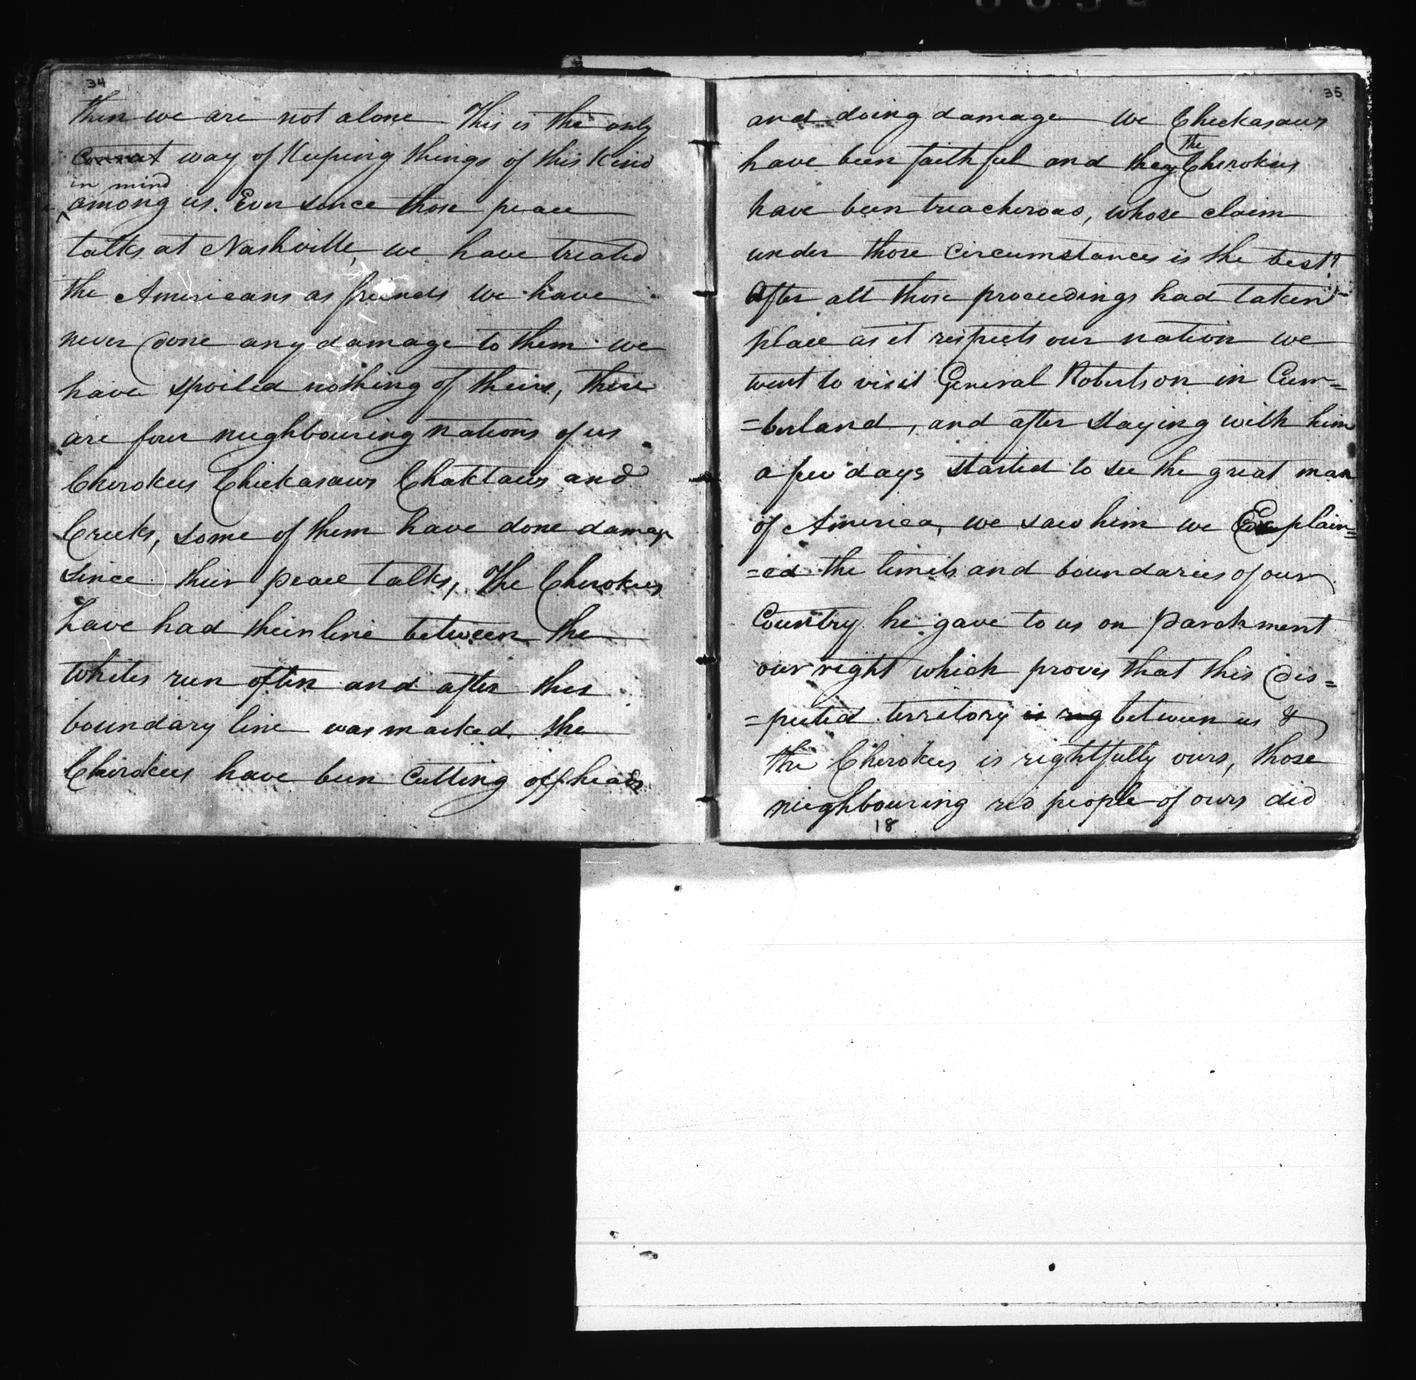 34
then we are not alone This is the only
correct way of Keeping things of this Kind
in mind
among us. Ever since those peace
talks at Nashville, we have treated
the Americans as freinds we have
never done any damage to them we
have spoiled nothing of theirs, there
are four neighbouring nations of us
Cherokees Chickasaws Chaktaws and
Creeks, some of them have done damage
since their peace talks, The Cherokees
have had their line between the
whites run often and after this
boundary line was marked the
Cherokees have been cutting off heads
35
and doing damage we Chickasaws
The
have been faithful and they Cherokees
have been treacherous, whose claim
under those circumstances is the best?
After all those proceedings had taken
place as it respects our nation we
went to visit General Robertson in Cum=
=berland, and after staying with him
a few days started to see the great man
of America, we saw him we Explain=
=ed the limits and boundaries of our
Country he gave to us on parchment
our right which proves that this dis=
=puted territory is rig between us &
the Cherokees is rightfully ours, those
nieghbouring red people of ours did
18